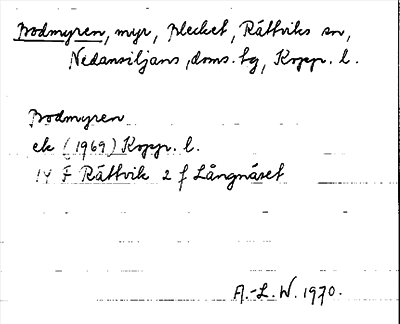 Bodmyren, myr, Plecket, Rättviks sn,
Nedansiljans, doms. tg, Kopp. l.
Bodmyren
ek (1969) Kopp. l.
14 F Rättvik 2 f Långnäset
A.-L. W. 1970.